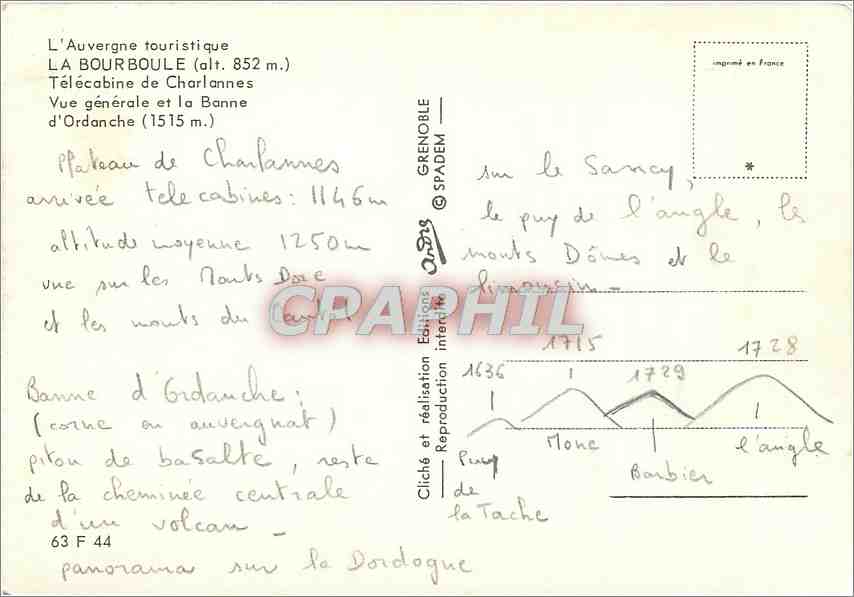 L'Auvergne touristique
LA BOURBOULE (alt. 852 m.)
Télécabine de Charlannes
Vue générale et la Banne
d'Ordanche (1515 m.)
Plateau de Charlannes
arrivée télécabines : 1146m
altitude moyenne 1250m
vue sur les Monts Dore
et les monts du Cantal
Banne d'Ordanche :
(corne en auvergnat)
piton de basalte, reste
de la cheminée centrale
d'un volcan -
63 F 44
panorama sur la Dordogne
Cliché et réalisation Editions André GRENOBLE
Reproduction interdite © SPADEM
imprimé en France
*
sur le Sancy,
le puy de l'angle, les
monts Dômes et le
limousin -
1636 1715 1729 1728
Puy de la Tache
Mone
Barbier
l'angle
CPAPHIL